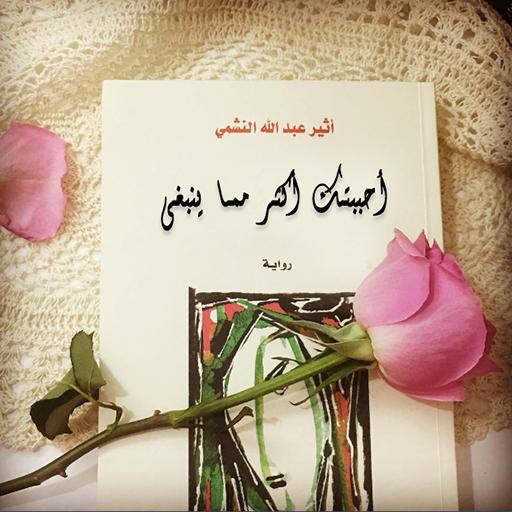 أثير عبد الله النشمي
أحببتك أكثر مما ينبغى
رواية